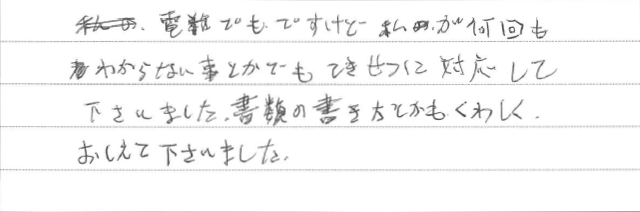 電難でもですけど 私が何回も
わからない事とかでもてきせつに対応して
下さいました。書類の書き方とかもくわしく、
おしえて下さいました。